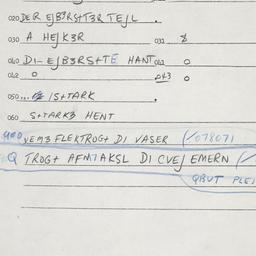 020 DER EJB3RS+T3R TEJL .
030 A HEJK3R 031 8
040 DI– EJB3RS+TE HANT 041 0
042 0 043 0
050 ... IS+TARK .
060 S+TARK3 HENT
YEM3 FLEKTROG+ DI VASER (/078071
Q TROG+ AFM7AKSL DI CVEJ EMERN (/
QBUT PLEJ